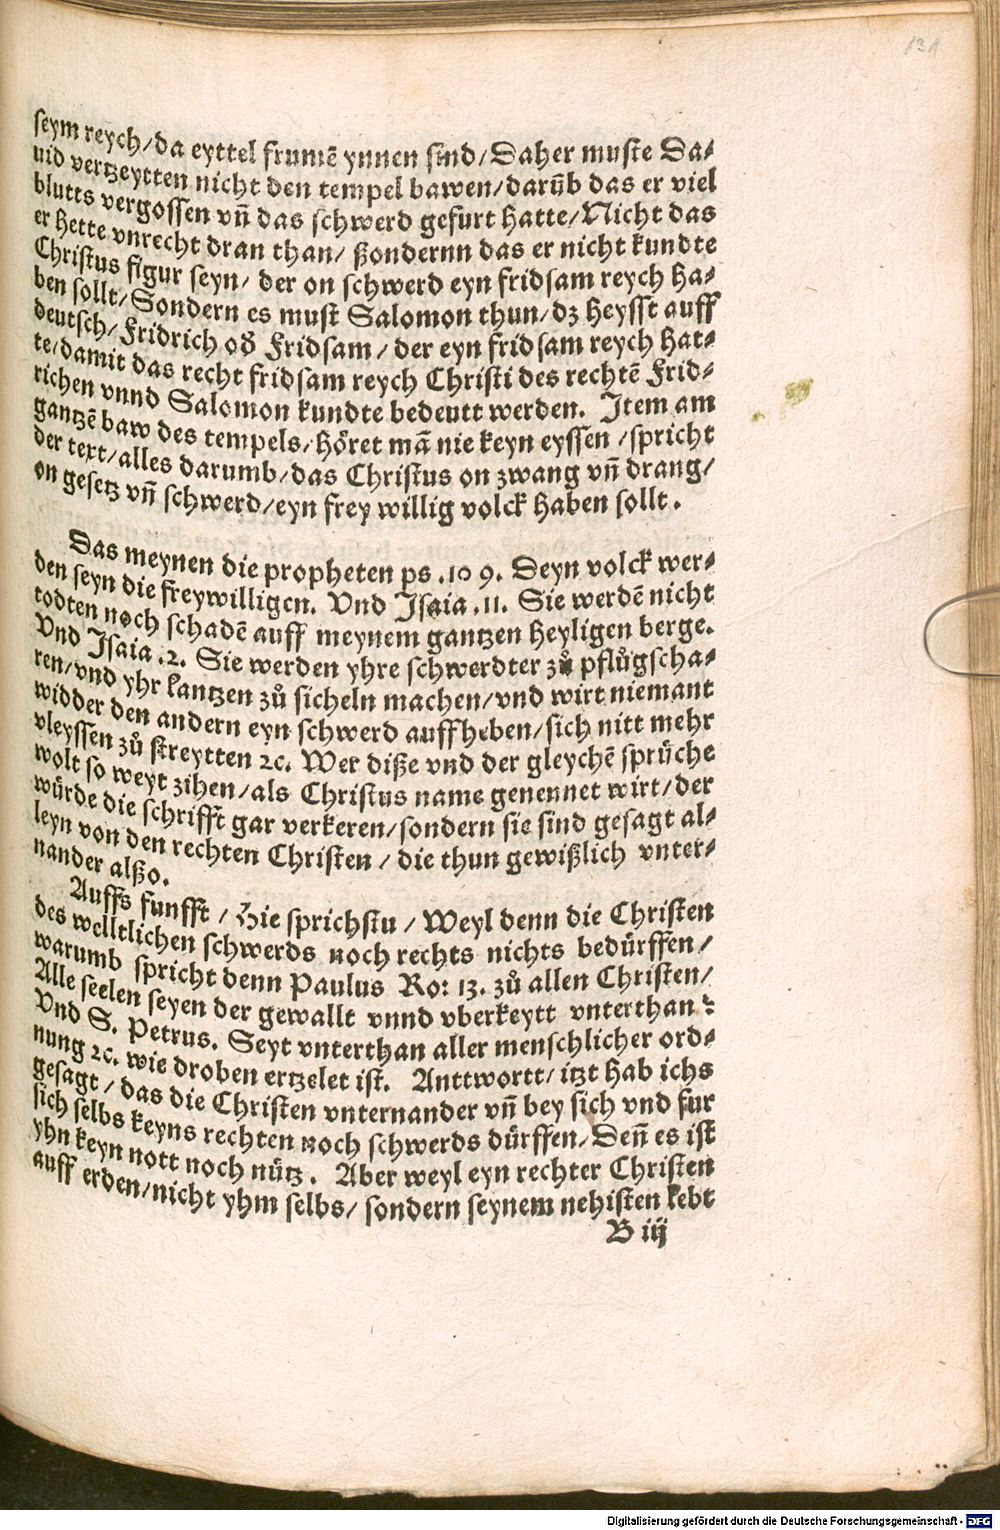 131
seym reych/da eyttel frumē ynnen sind/Daher muste Da-
uid vertzeytten nicht den tempel bawen/darūb das er viel
blutts vergossen vn̄ das schwerd gefurt hatte/Nicht das
er hette vnrecht dran than/ ßondernn das er nicht kundte
Christus figur seyn/ der on schwerd eyn fridsam reych ha-
ben sollt/Sondern es must Salomon thun/dz heysst auff
deutsch/Fridrich od̄ Fridsam/ der eyn fridsam reych hat-
te/damit das recht fridsam reych Christi des rechtē Frid-
richen vnnd Salomon kundte bedeutt werden. Item am
gantzē baw des tempels/höret mā nie keyn eyssen/spricht
der text/alles darumb/das Christus on zwang vn̄ drang/
on gesetz vn̄ schwerd/eyn frey willig volck haben sollt.
Das meynen die propheten ps.109. Deyn volck wer-
den seyn die freywilligen. Vnd Isaia.11. Sie werdē nicht
todten noch schadē auff meynem gantzen heyligen berge.
Vnd Isaia.2. Sie werden yhre schwerdter zů pflůgscha-
ren/vnd yhr lantzen zů sicheln machen/vnd wirt niemant
widder den andern eyn schwerd auffheben/sich nitt mehr
vleyssen zů streytten ꝛc. Wer diße vnd der gleychē sprüche
wolt so weyt zihen/als Christus name genennet wirt/der
würde die schrifft gar verkeren/sondern sie sind gesagt al-
leyn von den rechten Christen/ die thun gewißlich vnter-
nander alßo.
Auffs funfft/ Hie sprichstu/ Weyl denn die Christen
des welltlichen schwerds noch rechts nichts bedürffen/
warumb spricht denn Paulus Ro: 13. zů allen Christen/
Alle seelen seyen der gewallt vnnd vberkeytt vnterthan?
Vnd S. Petrus. Seyt vnterthan aller menschlicher ord-
nung ꝛc. wie droben ertzelet ist. Anttwortt/ itzt hab ichs
gesagt/ das die Christen vnternander vn̄ bey sich vnd fur
sich selbs keyns rechten noch schwerds dürffen/Den̄ es ist
yhn keyn nott noch nütz. Aber weyl eyn rechter Christen
auff erden/nicht yhm selbs/ sondern seynem nehisten lebt
B iij
Digitalisierung gefördert durch die Deutsche Forschungsgemeinschaft - DFG